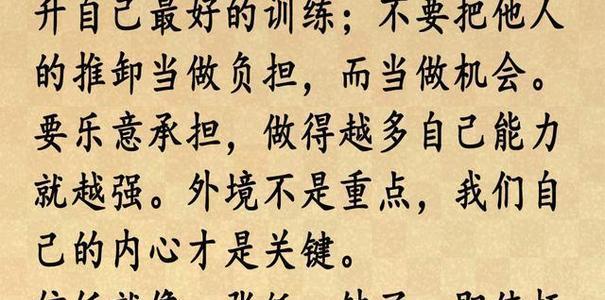 升自己最好的训练；不要把他人
的推卸当做负担，而当做机会。
要乐意承担，做得越多自己能力
就越强。外境不是重点，我们自
己的内心才是关键。